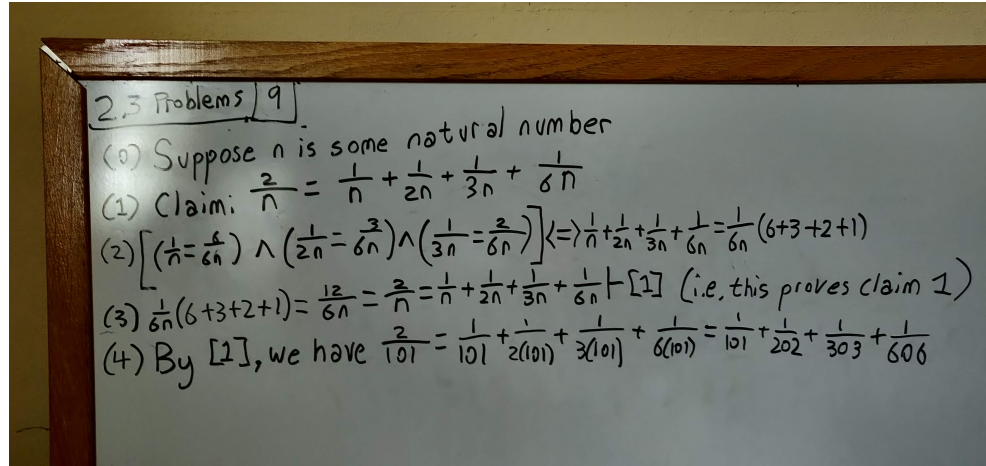 2.3 Problems 9
(0) Suppose n is some natural number
(1) Claim: 2/n = 1/n + 1/2n + 1/3n + 1/6n
(2) [(1/n = 6/6n) ∧ (1/2n = 3/6n) ∧ (1/3n = 2/6n)] <=> 1/n + 1/2n + 1/3n + 1/6n = 1/6n (6+3+2+1)
(3) 1/6n (6+3+2+1) = 12/6n = 2/n = 1/n + 1/2n + 1/3n + 1/6n ⊢ [1] (i.e, this proves claim 1)
(4) By [1], we have 2/101 = 1/101 + 1/2(101) + 1/3(101) + 1/6(101) = 1/101 + 1/202 + 1/303 + 1/606